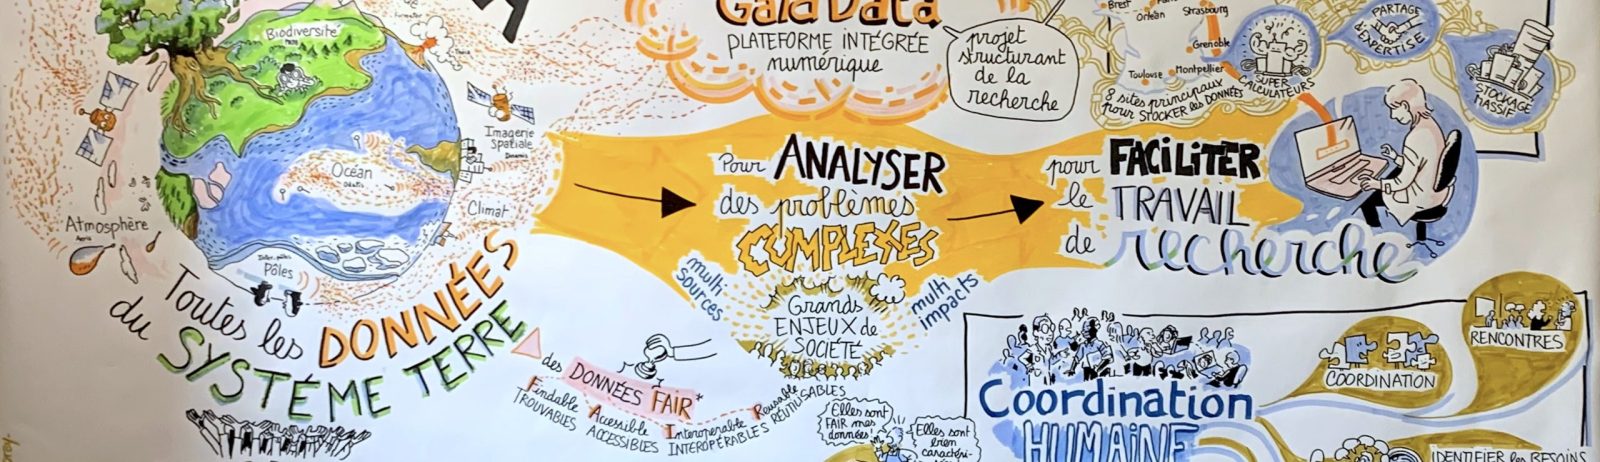 Gaia Data
PLATEFORME INTÉGRÉE
numérique
projet
structurant
de la
recherche
Brest
Orléan
Strasbourg
Grenoble
Toulouse
Montpellier
8 sites principaux
pour STOCKER les DONNÉES
SUPER
CALCULATEURS
PARTAGE
d'EXPERTISE
STOCKAGE
MASSIF
Biodiversité
Imagerie
Spatiale
Dinamis
Océan
Odatis
Climat
Atmosphère
Aeris
Pôles
Toutes les DONNÉES
du SYSTÈME TERRE
Pour ANALYSER
des problèmes
COMPLEXES
multi
sources
Grands
ENJEUX de
SOCIÉTÉ
multi
impacts
pour FACILITER
le TRAVAIL
de recherche
des DONNÉES FAIR*
Findable
TROUVABLES
Accessible
ACCESSIBLES
Interoperable
INTEROPÉRABLES
Reusable
RÉUTILISABLES
Elles sont
FAIR mes
données
Elles sont
bien
caractéri-
Coordination
HUMAINE
COORDINATION
RENCONTRES
IDENTIFIER les BESOINS